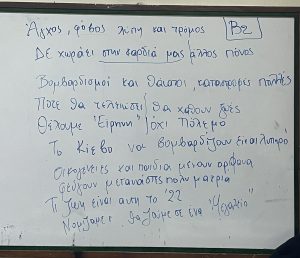 Άγχος, φόβος λύπη και τρόμος
B2
ΔΕ χωράει στην καρδιά μας άλλος πόνος
Βομβαρδισμοί και θάνατοι, καταστροφές πολλές
Πότε θα τελειώσει θα χαθούν ζωές
Θέλουμε "Ειρήνη" όχι Πόλεμο
Το Κίεβο να βομβαρδίζουν είναι λυπηρό
Οικογένειες και παιδιά μένουν ορφανά
φεύγουν μετανάστες πολύ μακριά
Τι ζωή είναι αυτή το '22
Νομίζαμε θα ζούμε σε ένα "Μεγαλείο"